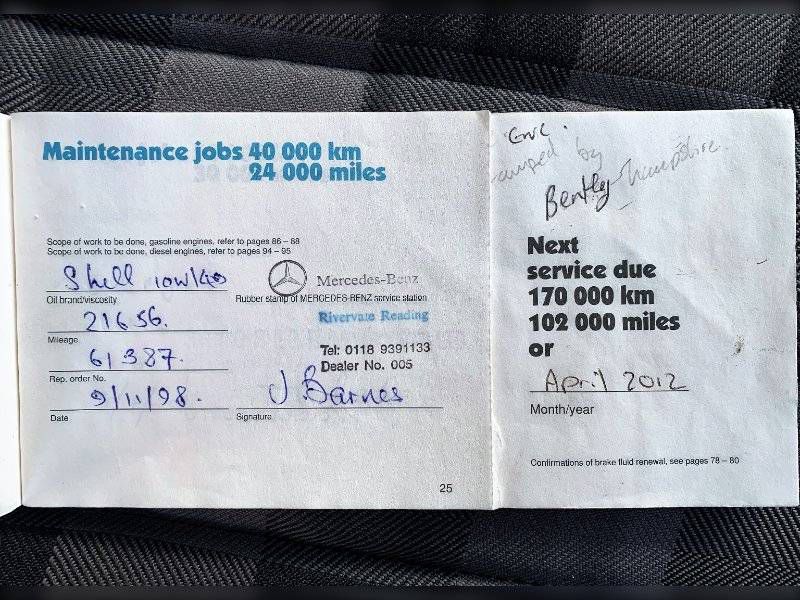 Maintenance jobs 40 000 km
24 000 miles
Scope of work to be done, gasoline engines, refer to pages 86 – 88
Scope of work to be done, diesel engines, refer to pages 94 – 95
Shell 10W/40
Oil brand/viscosity
21656.
Mileage
61387.
Rep. order No.
9/11/98.
Date
Mercedes-Benz
Rubber stamp of MERCEDES-BENZ service station
Rivervate Reading
Tel: 0118 9391133
Dealer No. 005
J Barnes
Signature
25
by
Bently Hampshire
Next
service due
170 000 km
102 000 miles
or
April 2012
Month/year
Confirmations of brake fluid renewal, see pages 78 – 80